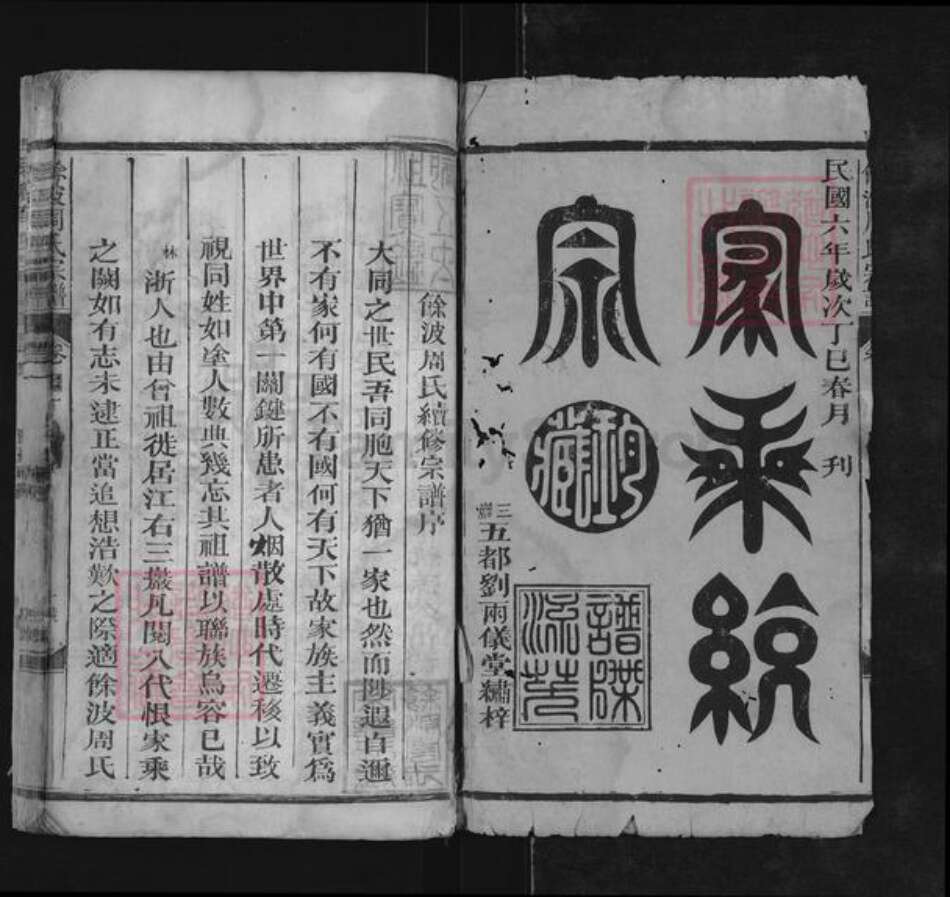 民國六年歲次丁巳春月 刊
家乘統
宗
珍藏
譜牒流芳
三鄉五都劉兩儀堂繡梓
餘波周氏續修宗譜序
大同之世民吾同胞天下猶一家也然而陟遐自邇
不有家何有國不有國何有天下故家族主義實爲
世界中第一關鍵所患者人烟散處時代遷移以致
視同姓如塗人數典幾忘其祖譜以聯族烏容已哉
林浙人也由曾祖徙居江右三撮凡閱八代恨家乘
之闕如有志未逮正當追想浩歎之際適餘波周氏
餘波周氏宗譜